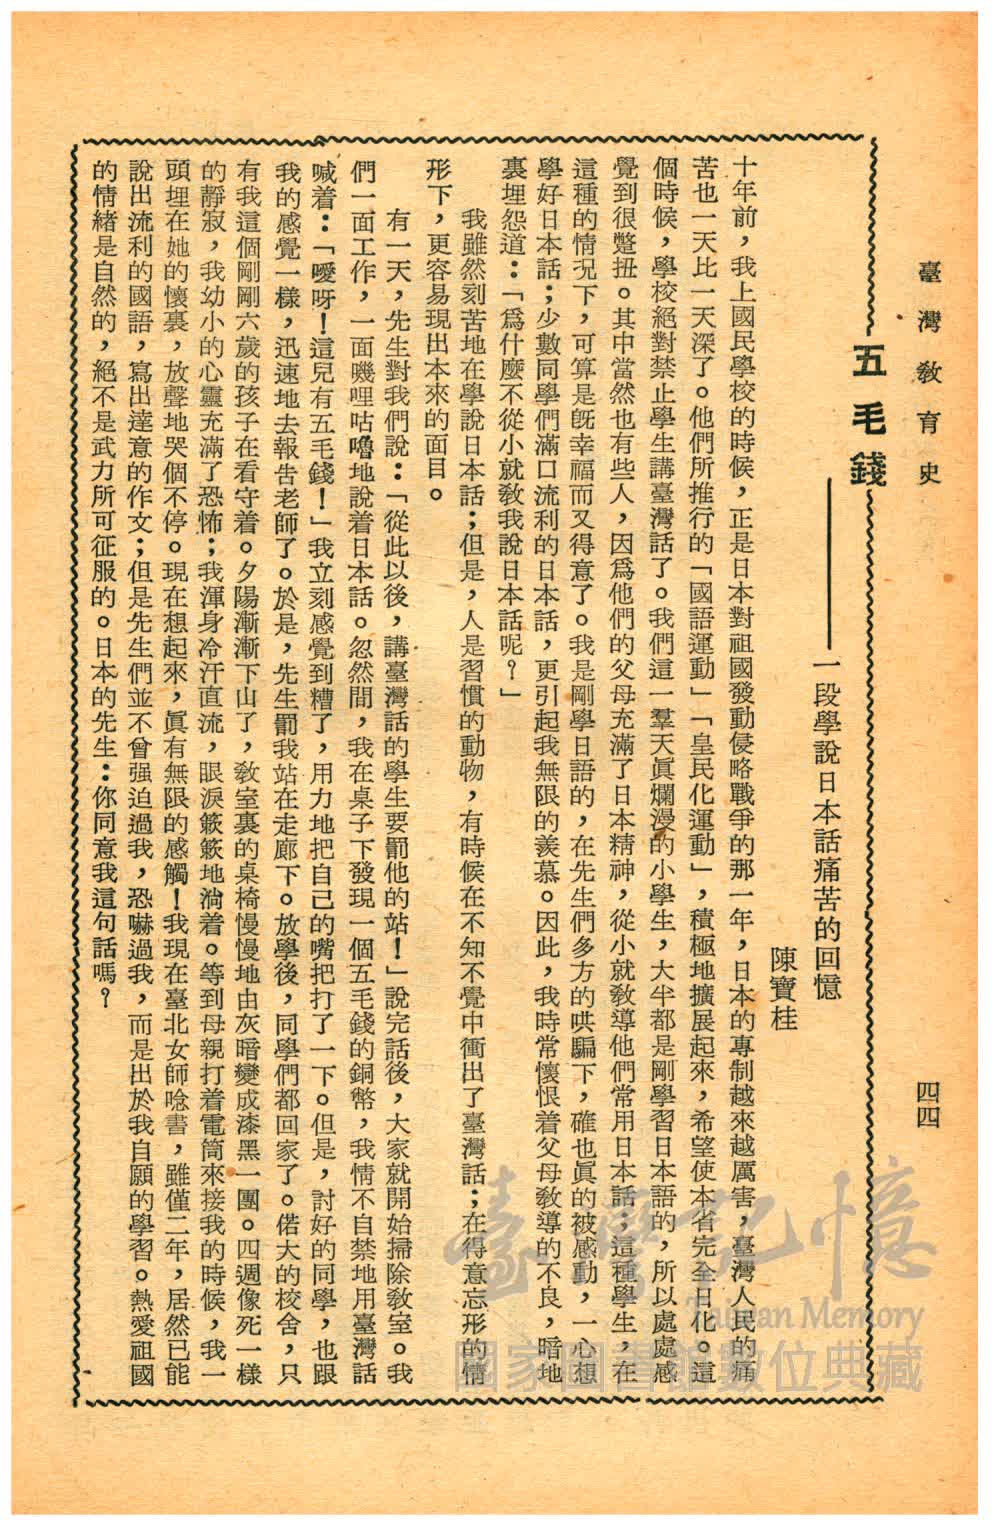 臺灣教育史
四四
五毛錢
——一段學說日本話痛苦的回憶
陳寶桂
十年前，我上國民學校的時候，正是日本對祖國發動侵略戰爭的那一年，日本的專制越來越厲害，臺灣人民的痛
苦也一天比一天深了。他們所推行的「國語運動」「皇民化運動」，積極地擴展起來，希望使本省完全日化。這
個時候，學校絕對禁止學生講臺灣話了。我們這一羣天眞爛漫的小學生，大半都是剛學習日本語的，所以處處感
覺到很蹩扭。其中當然也有些人，因爲他們的父母充滿了日本精神，從小就敎導他們常用日本話；這種學生，在
這種的情況下，可算是旣幸福而又得意了。我是剛學日語的，在先生們多方的哄騙下，確也眞的被感動，一心想
學好日本話；少數同學們滿口流利的日本話，更引起我無限的羨慕。因此，我時常懷恨着父母敎導的不良，暗地
裏埋怨道：「爲什麼不從小就敎我說日本話呢？」
我雖然刻苦地在學說日本話；但是，人是習慣的動物，有時候在不知不覺中衝出了臺灣話；在得意忘形的情
形下，更容易現出本來的面目。
有一天，先生對我們說：「從此以後，講臺灣話的學生要罰他的站！」說完話後，大家就開始掃除敎室。我
們一面工作，一面嘰哩咕嚕地說着日本話。忽然間，我在桌子下發現一個五毛錢的銅幣，我情不自禁地用臺灣話
喊着：「噯呀！這兒有五毛錢！」我立刻感覺到糟了，用力地把自己的嘴把打了一下。但是，討好的同學，也跟
我的感覺一樣，迅速地去報告老師了。於是，先生罰我站在走廊下。放學後，同學們都回家了。偌大的校舍，只
有我這個剛剛六歲的孩子在看守着。夕陽漸漸下山了，敎室裏的桌椅慢慢地由灰暗變成漆黑一團。四週像死一樣
的靜寂，我幼小的心靈充滿了恐怖；我渾身冷汗直流，眼淚簌簌地淌着。等到母親打着電筒來接我的時候，我一
頭埋在她的懷裏，放聲地哭個不停。現在想起來，眞有無限的感觸！我現在臺北女師唸書，雖僅二年，居然已能
說出流利的國語，寫出達意的作文；但是先生們並不曾强迫過我，恐嚇過我，而是出於我自願的學習。熱愛祖國
的情緒是自然的，絕不是武力所可征服的。日本的先生：你同意我這句話嗎？
臺灣記憶
Taiwan Memory
國家圖書館數位典藏